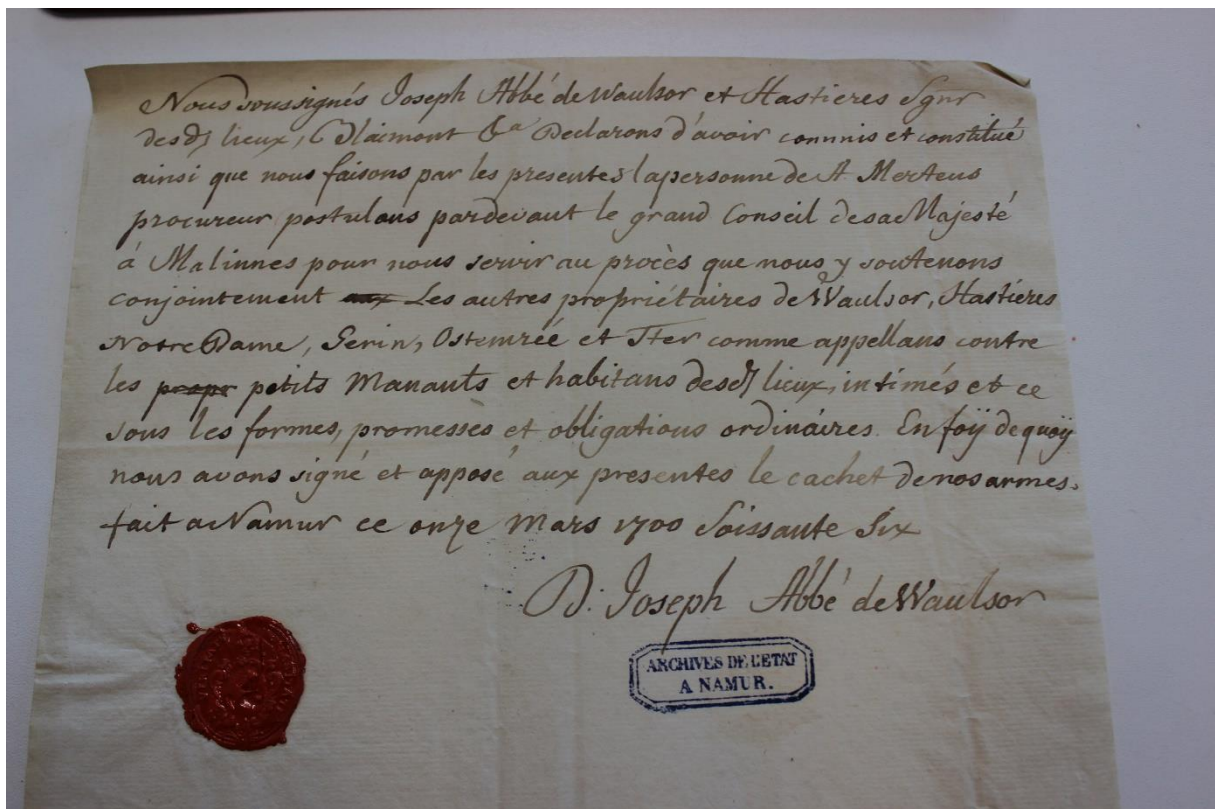 Nous soussignés Joseph Abbé de Waulsor et Hastieres Sgnr
des ds lieux, Blaimont &a Declarons d'avoir commis et constitué
ainsi que nous faisons par les presentes la personne de A Mertens
procureur postulans pardevant le grand Conseil de sa Majesté
á Malinnes pour nous servir au procès que nous y soutenons
conjointement aux Les autres propriétaires de Waulsor, Hastieres
Notre Dame, Serin, Ostemrée et Fter comme appellans contre
les propr petits Manants et habitans desds lieux, intimés et ce
sous les formes, promesses et obligations ordináires. En foÿ de quoÿ
nous avons signé et apposé aux presentes le cachet de nos armes.
fait a Namur ce onze Mars 1700 Soissante Six
D. Joseph Abbé de Waulsor
ARCHIVES DE L'ETAT
A NAMUR.